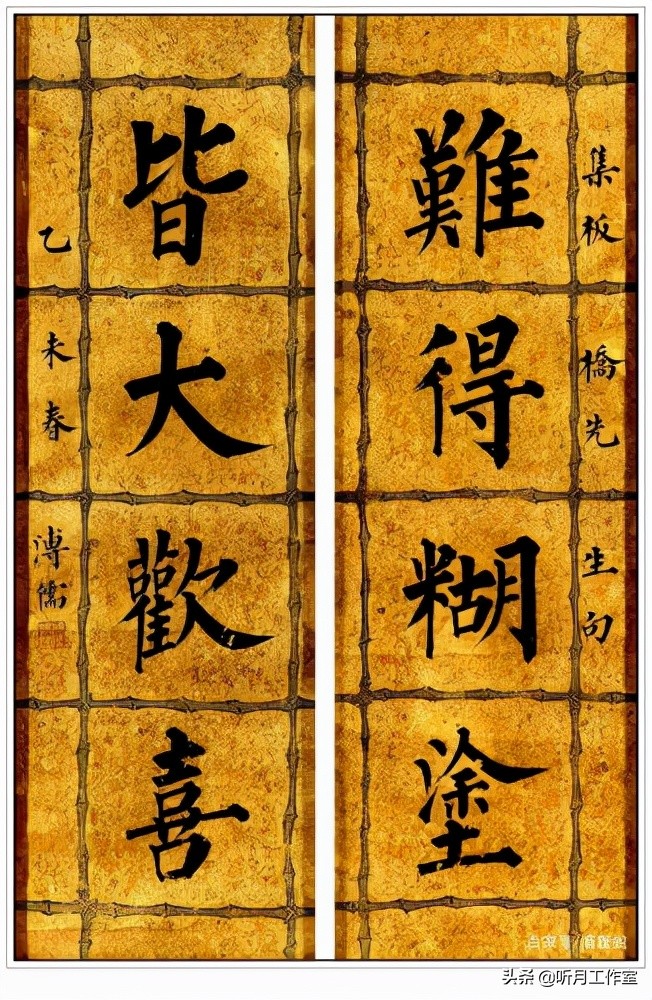 集板橋先生句
難得糊塗
皆大歡喜
乙未春溥儒
头条 @听月工作室